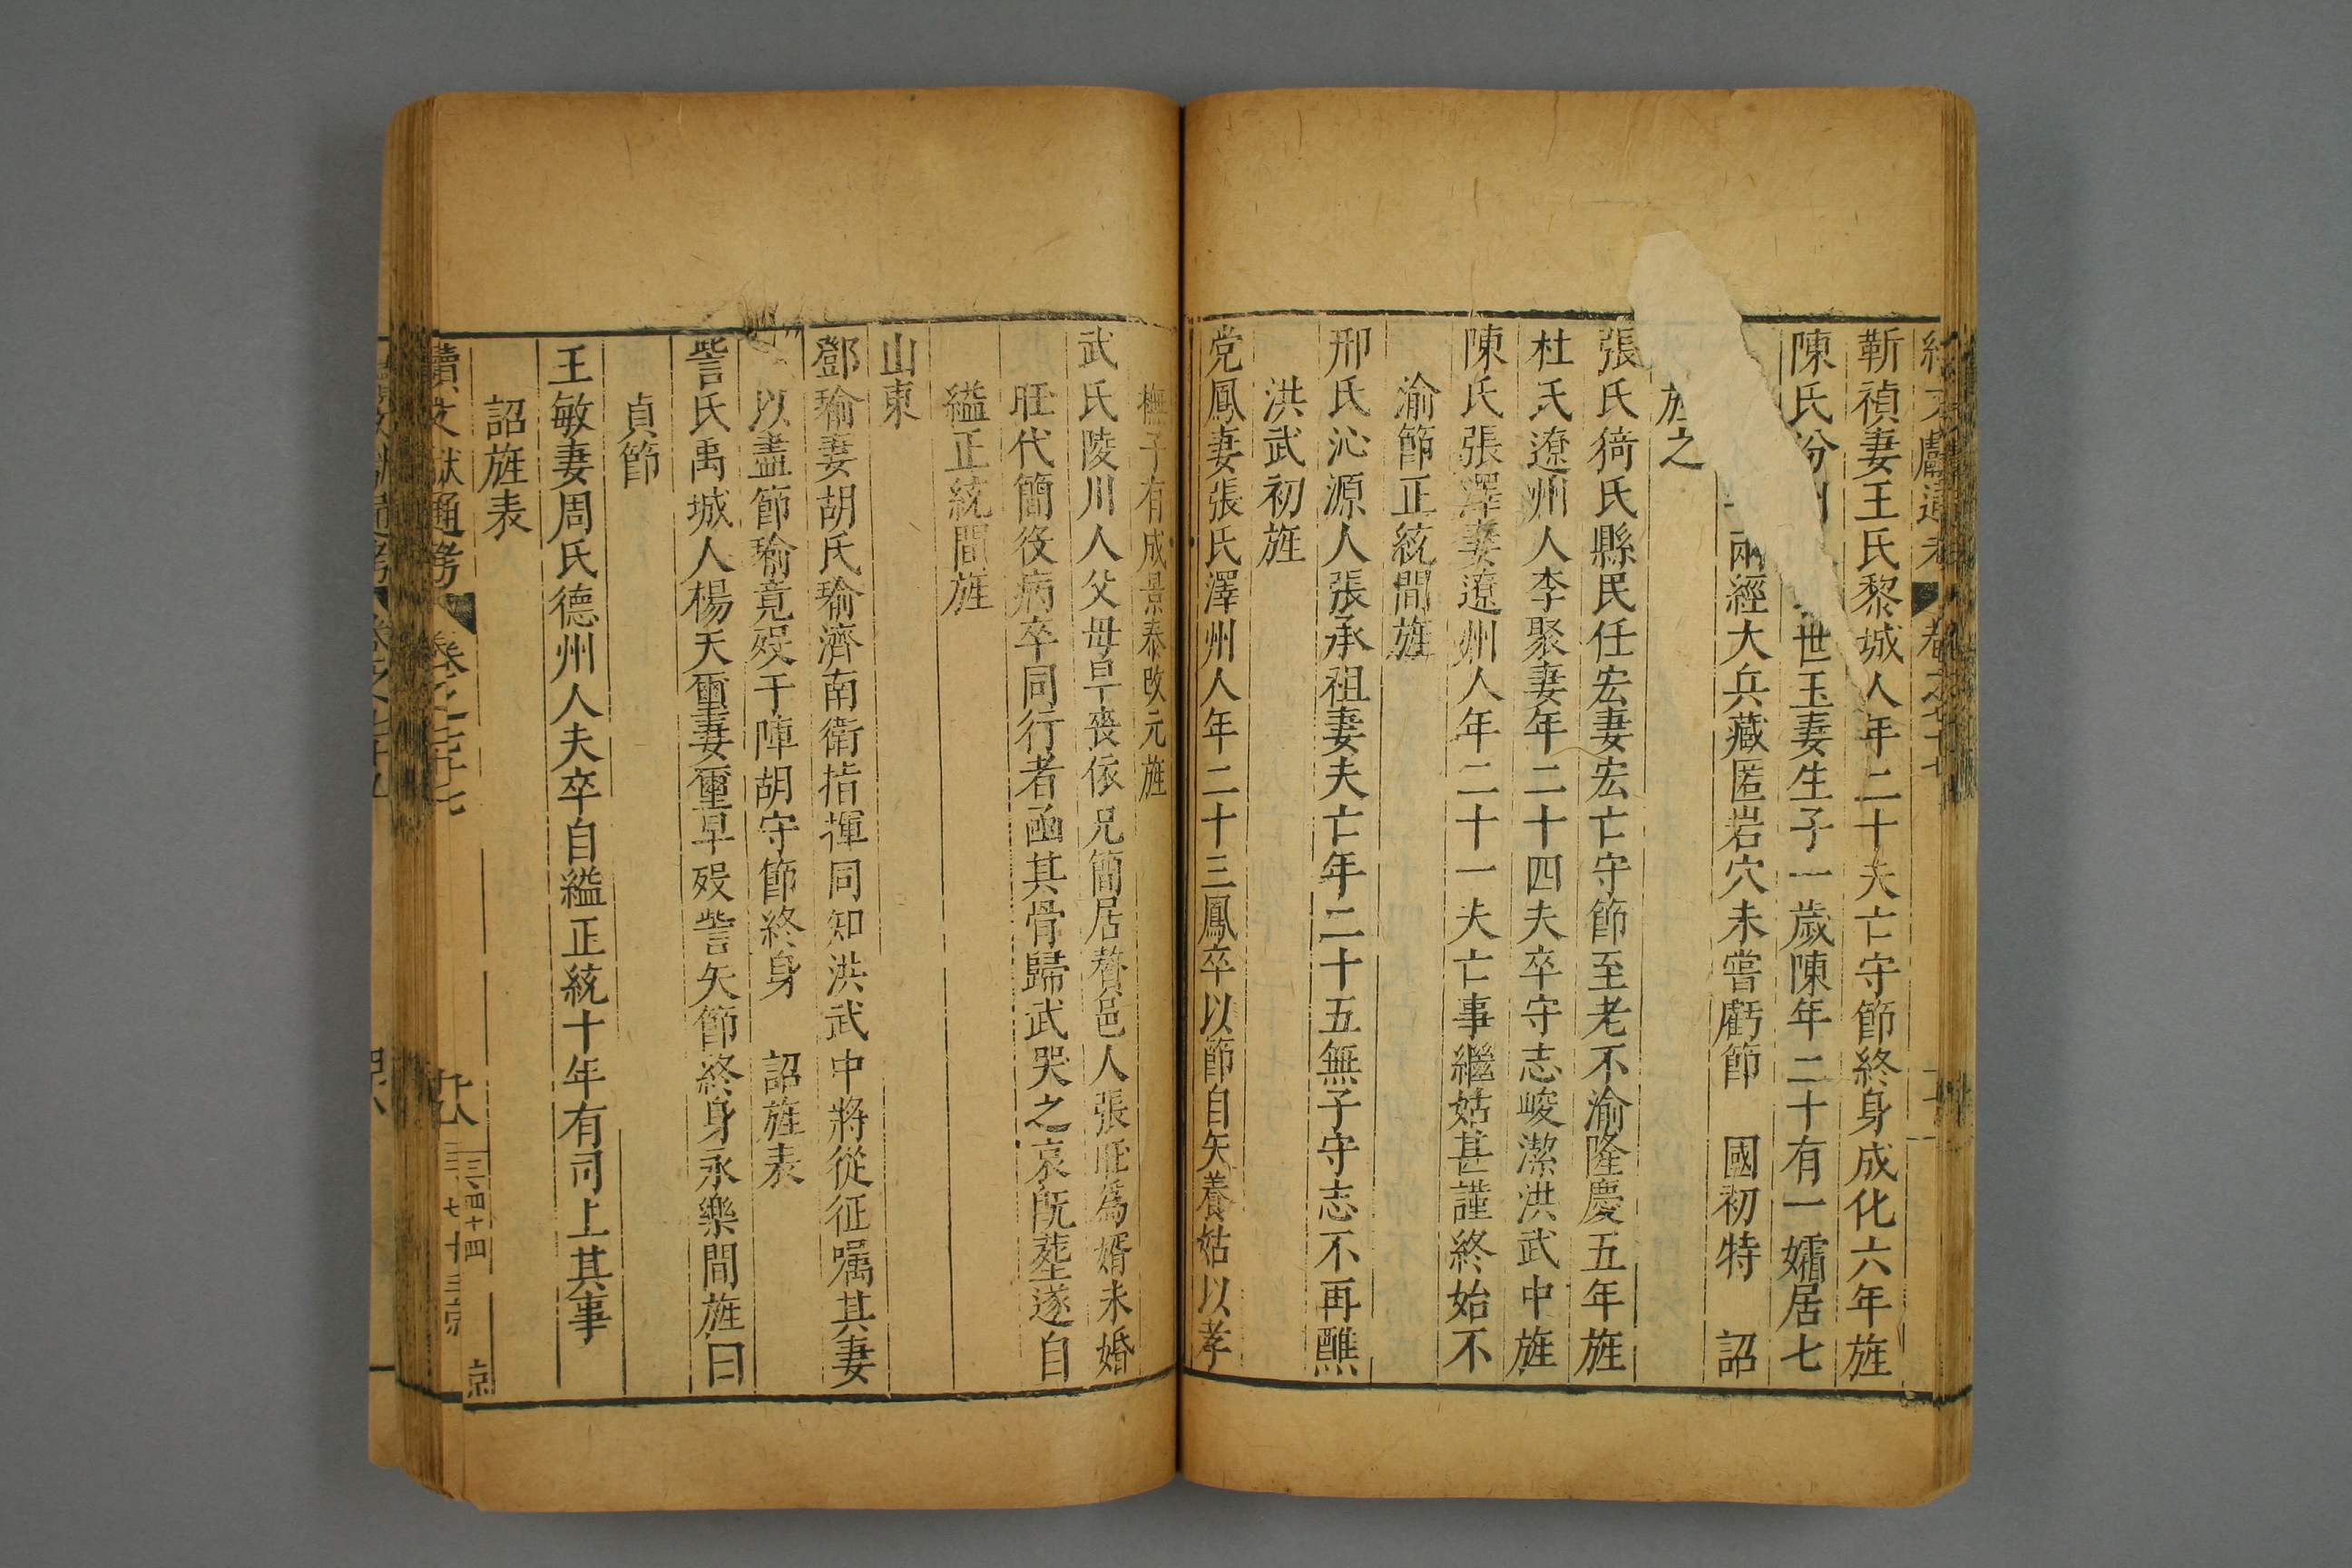 靳禎妻王氏黎城人年二十夫亡守節終身成化六年旌
陳氏汾州世玉妻生子一歲陳年二十有一孀居七
兩經大兵藏匿岩穴未嘗虧節 國初特 詔
旌之
張氏猗氏縣民任宏妻宏亡守節至老不渝隆慶五年旌
杜氏遼州人李聚妻年二十四夫卒守志峻潔洪武中旌
陳氏張澤妻遼州人年二十一夫亡事繼姑甚謹終始不
渝節正統間旌
邢氏沁源人張承祖妻夫亡年二十五無子守志不再醮
洪武初旌
党鳳妻張氏澤州人年二十三鳳卒以節自矢養姑以孝
撫子有成景泰改元旌
武氏陵川人父母早喪依兄簡居贅邑人張旺為婿未婚
旺代簡役病卒同行者函其骨歸武哭之哀既塟遂自
縊正統間旌
山東
鄧瑜妻胡氏瑜濟南衛指揮同知洪武中將從征囑其妻
以盡節瑜竟歿于陣胡守節終身 詔旌表
訾氏禹城人楊天壐妻壐早歿訾矢節終身永樂間旌曰
貞節
王敏妻周氏德州人夫卒自縊正統十年有司上其事
詔旌表
續文獻通考 卷之七十七 廿八